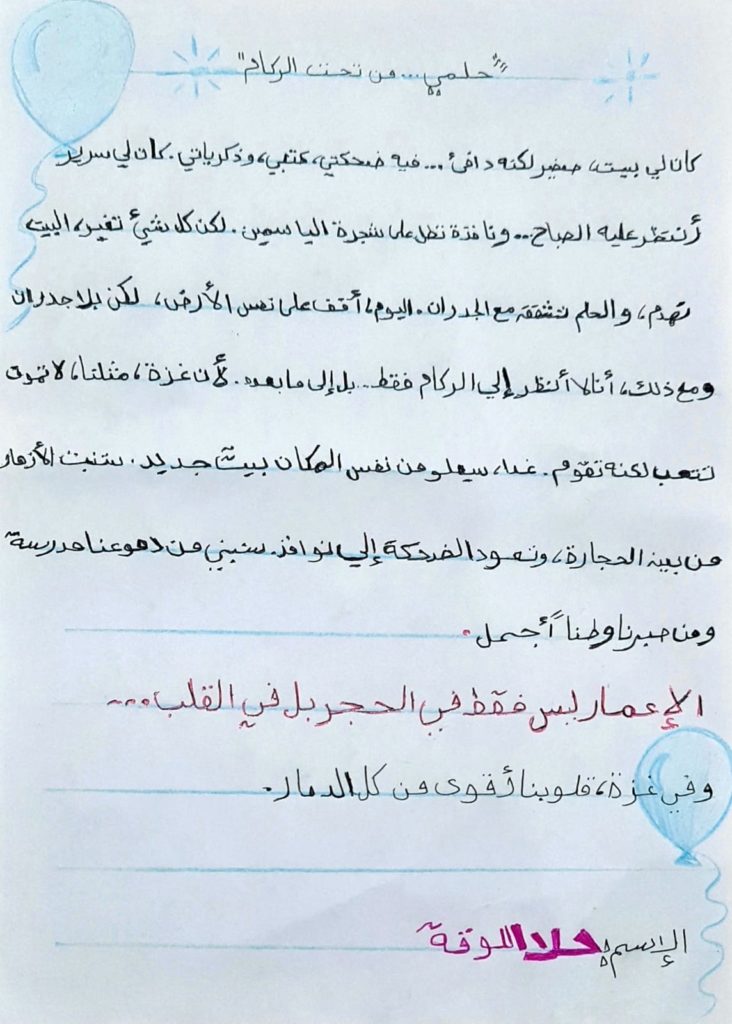 "حلمي... من تحت الركام"
كان لي بيت، صغير لكنه دافئ... فيه ضحكتي، كتبي، وذكرياتي. كان لي سرير
أنتظر عليه الصباح.. ونافذة تطل على شجرة الياسمين. لكن كل شيئ تغير، البيت
تهدم، والحلم تشقق مع الجدران. اليوم، أقف على نفس الأرض، لكن بلا جدران
ومع ذلك، أنا لا أنظر إلي الركام فقط.. بل إلى ما بعده. لأن غزة، مثلنا، لا تموت
تتعب لكنه تقوم. غدا، سيعلو من نفس المكان بيت جديد. ستنبت الأزهار
من بين الحجارة، وتعود الضحكة إلي النوافذ. سنبني من دموعنا مدرسة
ومن صبرنا وطناً أجمل.
الإعمار ليس فقط في الحجر بل في القلب...
وفي غزة، قلوبنا أقوى من كل الدمار.
الإسم: حلا اللوقة